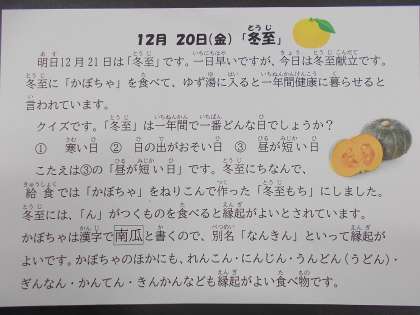 12月 20日(金)「冬至」
明日12月21日は「冬至」です。一日早いですが、今日は冬至献立です。
冬至に「かぼちゃ」を食べて、ゆず湯に入ると一年間健康に暮らせると
言われています。
クイズです。「冬至」は一年間で一番どんな日でしょうか？
① 寒い日 ② 日の出がおそい日 ③ 昼が短い日
こたえは③の「昼が短い日」です。冬至にちなんで、
給食では「かぼちゃ」をねりこんで作った「冬至もち」にしました。
冬至には、「ん」がつくものを食べると縁起がよいとされています。
かぼちゃは漢字で南瓜と書くので、別名「なんきん」といって縁起が
よいです。かぼちゃのほかにも、れんこん・にんじん・うんどん（うどん）・
ぎんなん・かんてん・きんかんなども縁起がよい食べ物です。